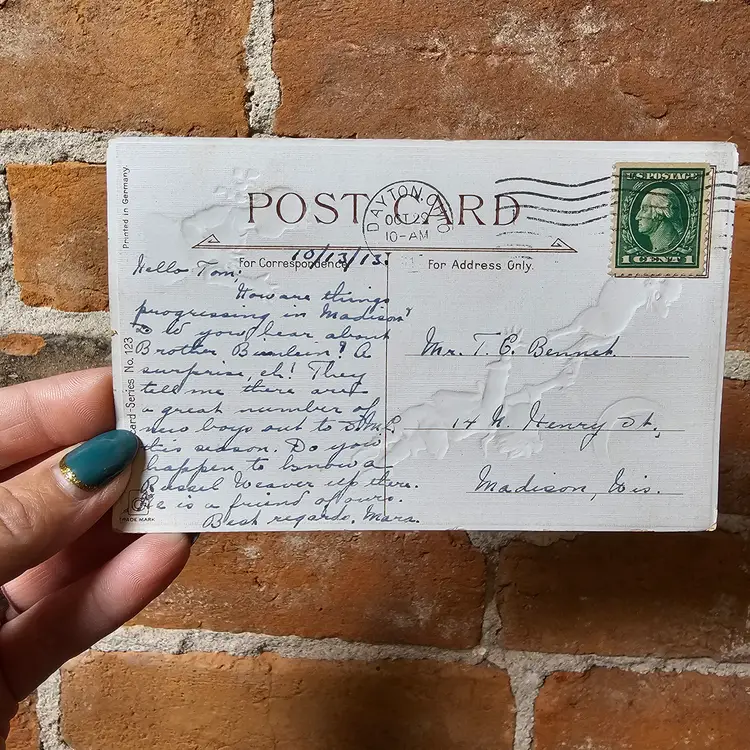 POST CARD
DAYTON, OHIO
OCT 29
10-AM
U.S. POSTAGE
1 CENT 1
Printed in Germany.
For Correspondence
For Address Only.
10/13/13.
Hello Tom;
How are things
progressing in Madison?
Did you hear about
Brother? A
surprise, eh! They
tell me there are
a great number of
new boys out to
this season. Do you
happen to know a
Russel Weaver up there.
He is a friend of ours.
Best regards, Mara.
Mr. T. E. Bennet
14 N. Henry St.,
Madison, Wis.
ard-Series No. 123
TRADE MARK